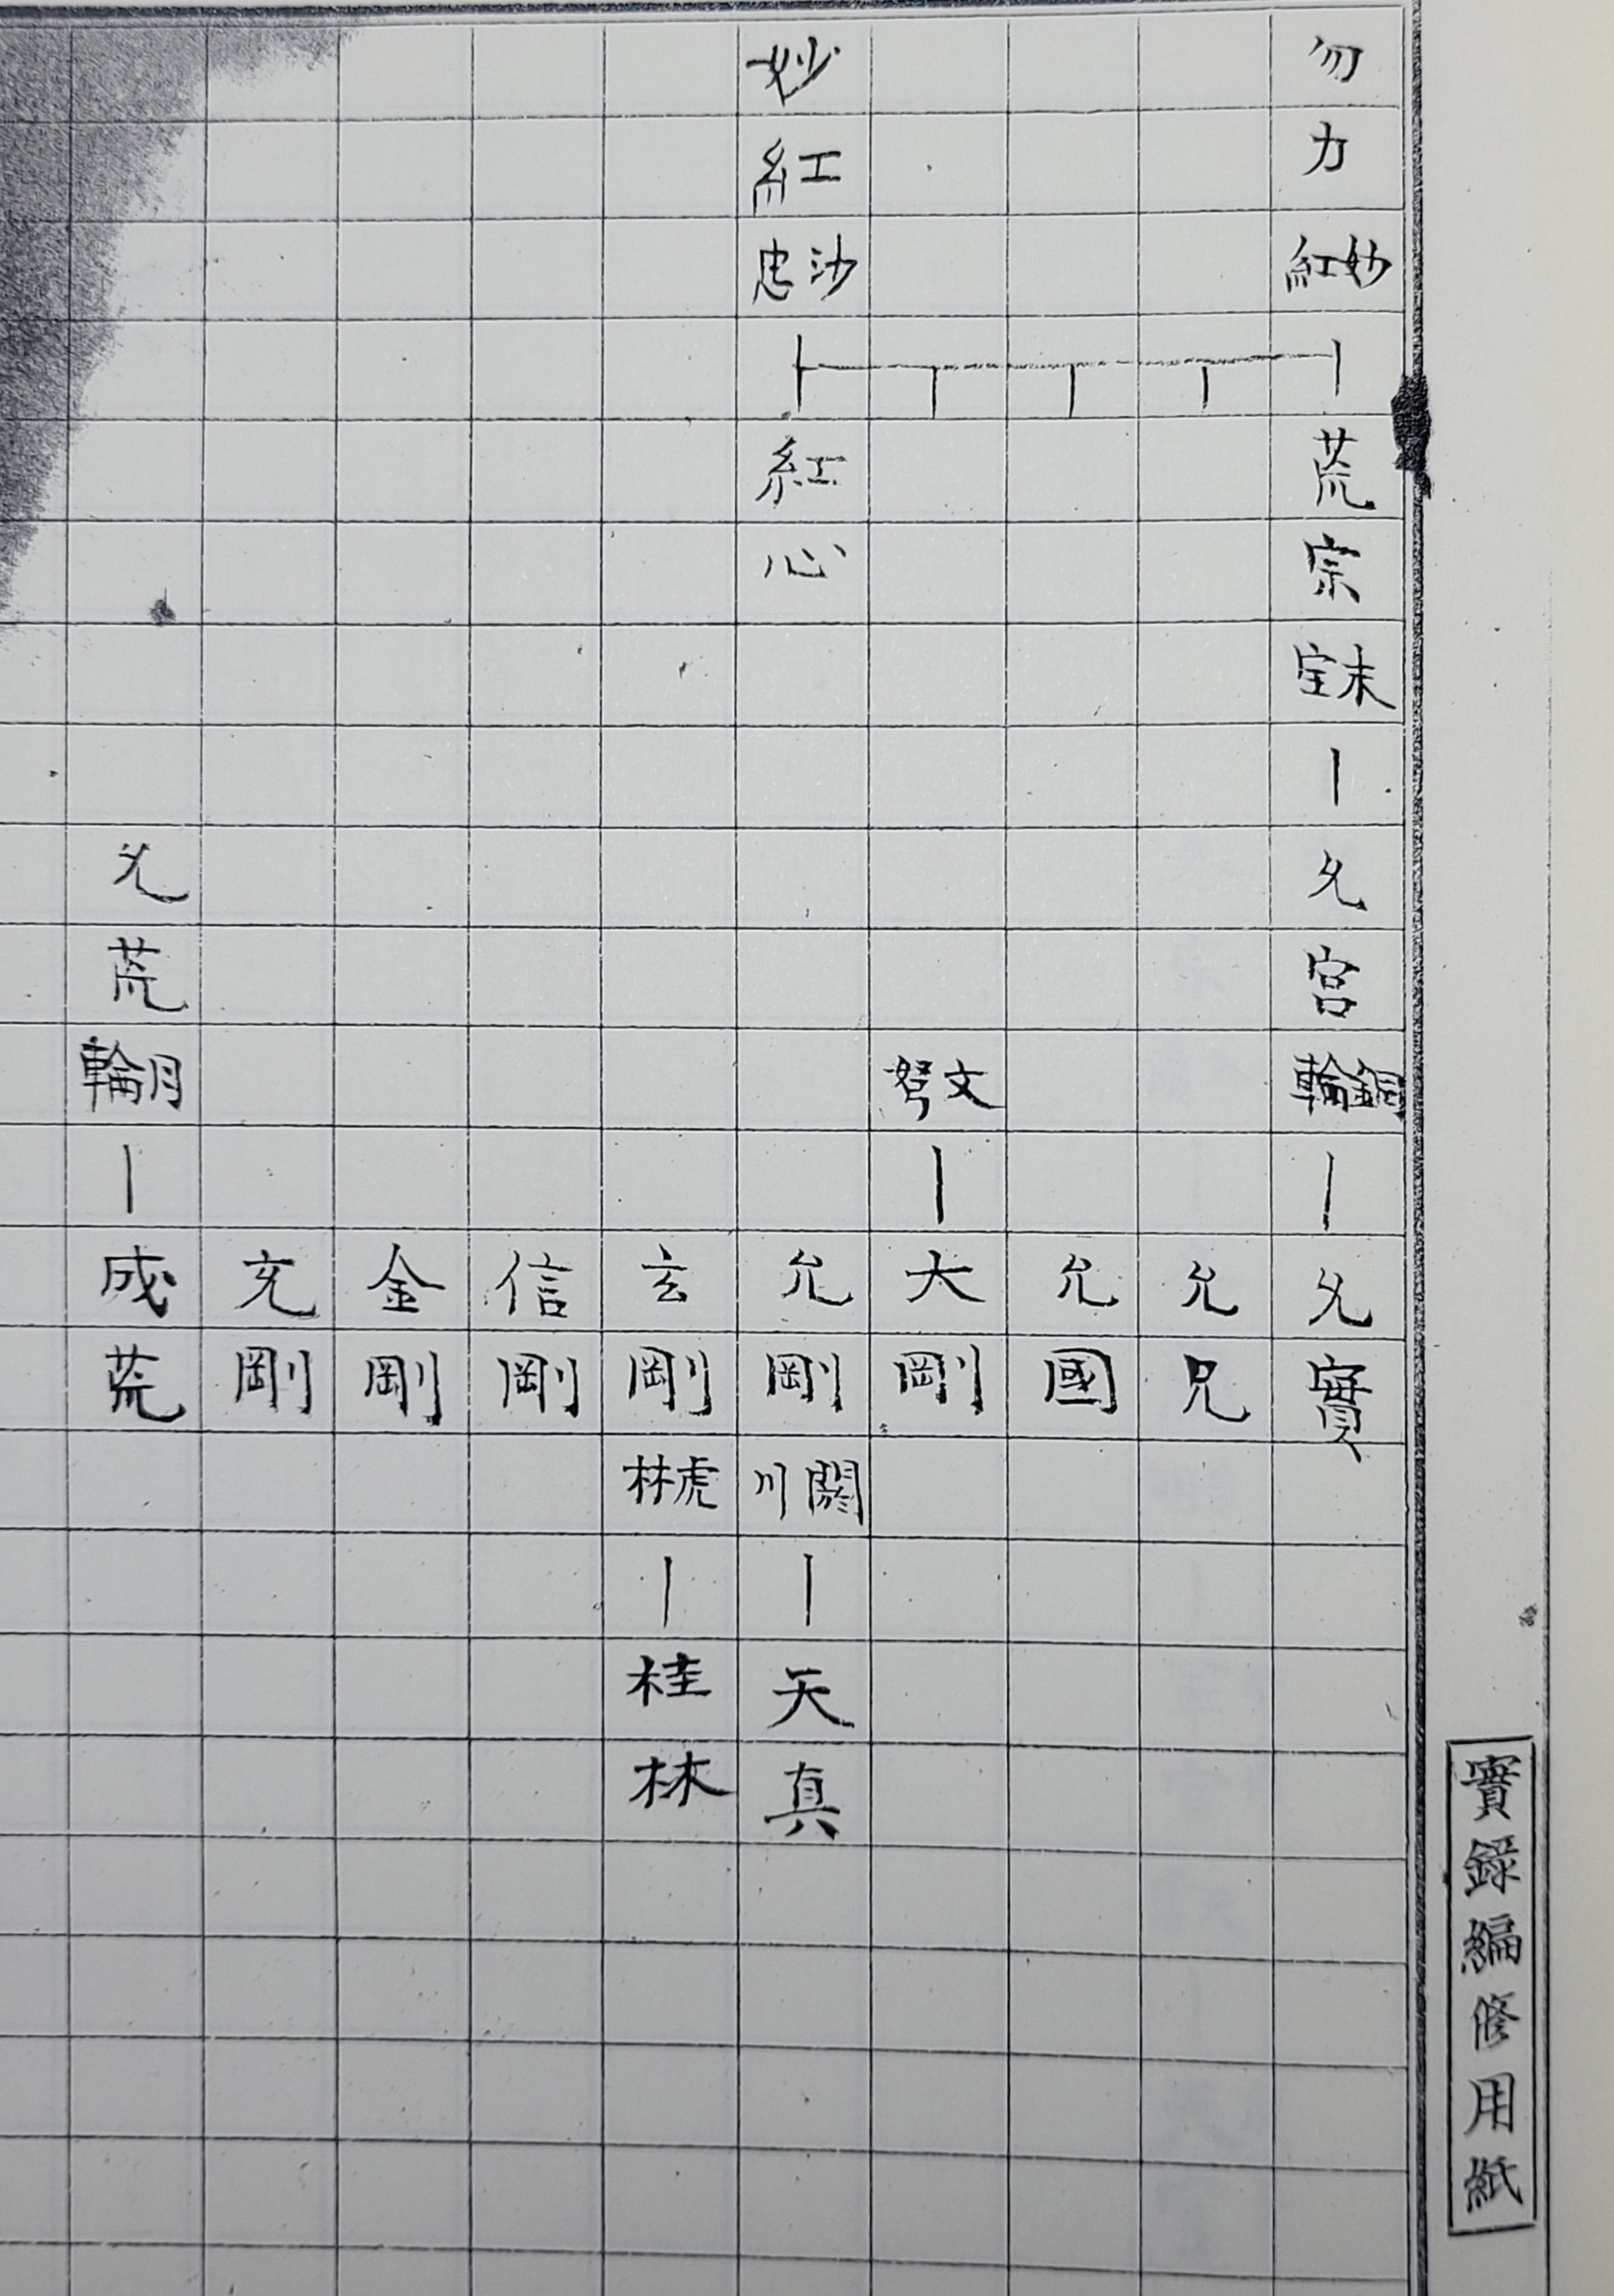 實錄編修用紙
勿力妙紅
荒宗末宝
允宮銅輪
允實
允兄
允國
文弩
大剛
妙紅沙忠
紅心
允剛閼川
天真
玄剛虎林
桂林
信剛
金剛
充剛
允荒月輪
成荒